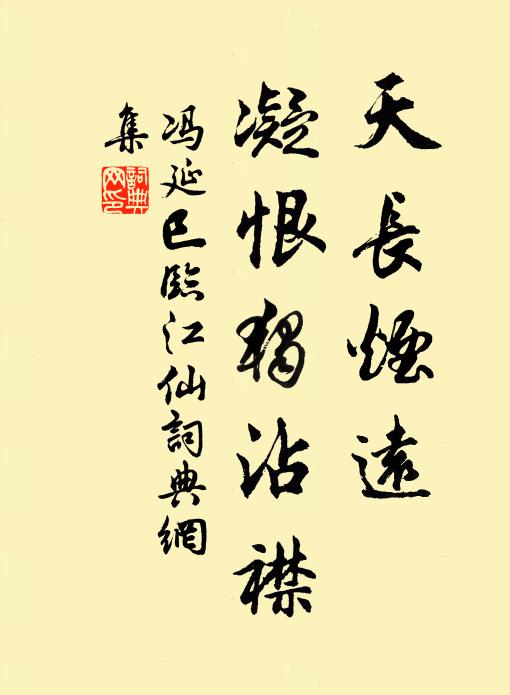 天長煙遠
凝恨獨沾襟
冯延巳臨江仙詞典網
集
詞典網印